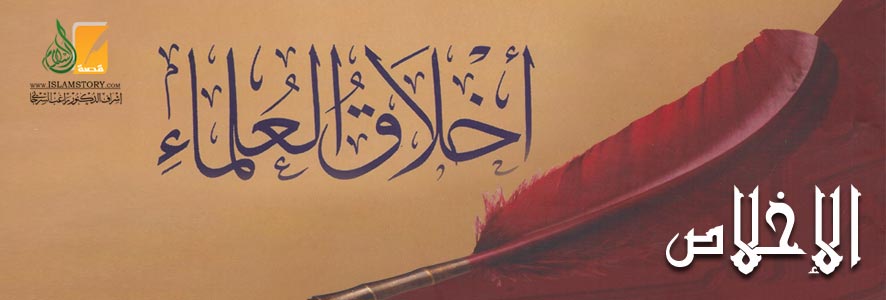 أخلاق العلماء
الإخلاص
قصة
الإسلام
WWW.ISLAMSTORY.COM
إشراف الدكتور راغب السرجاني